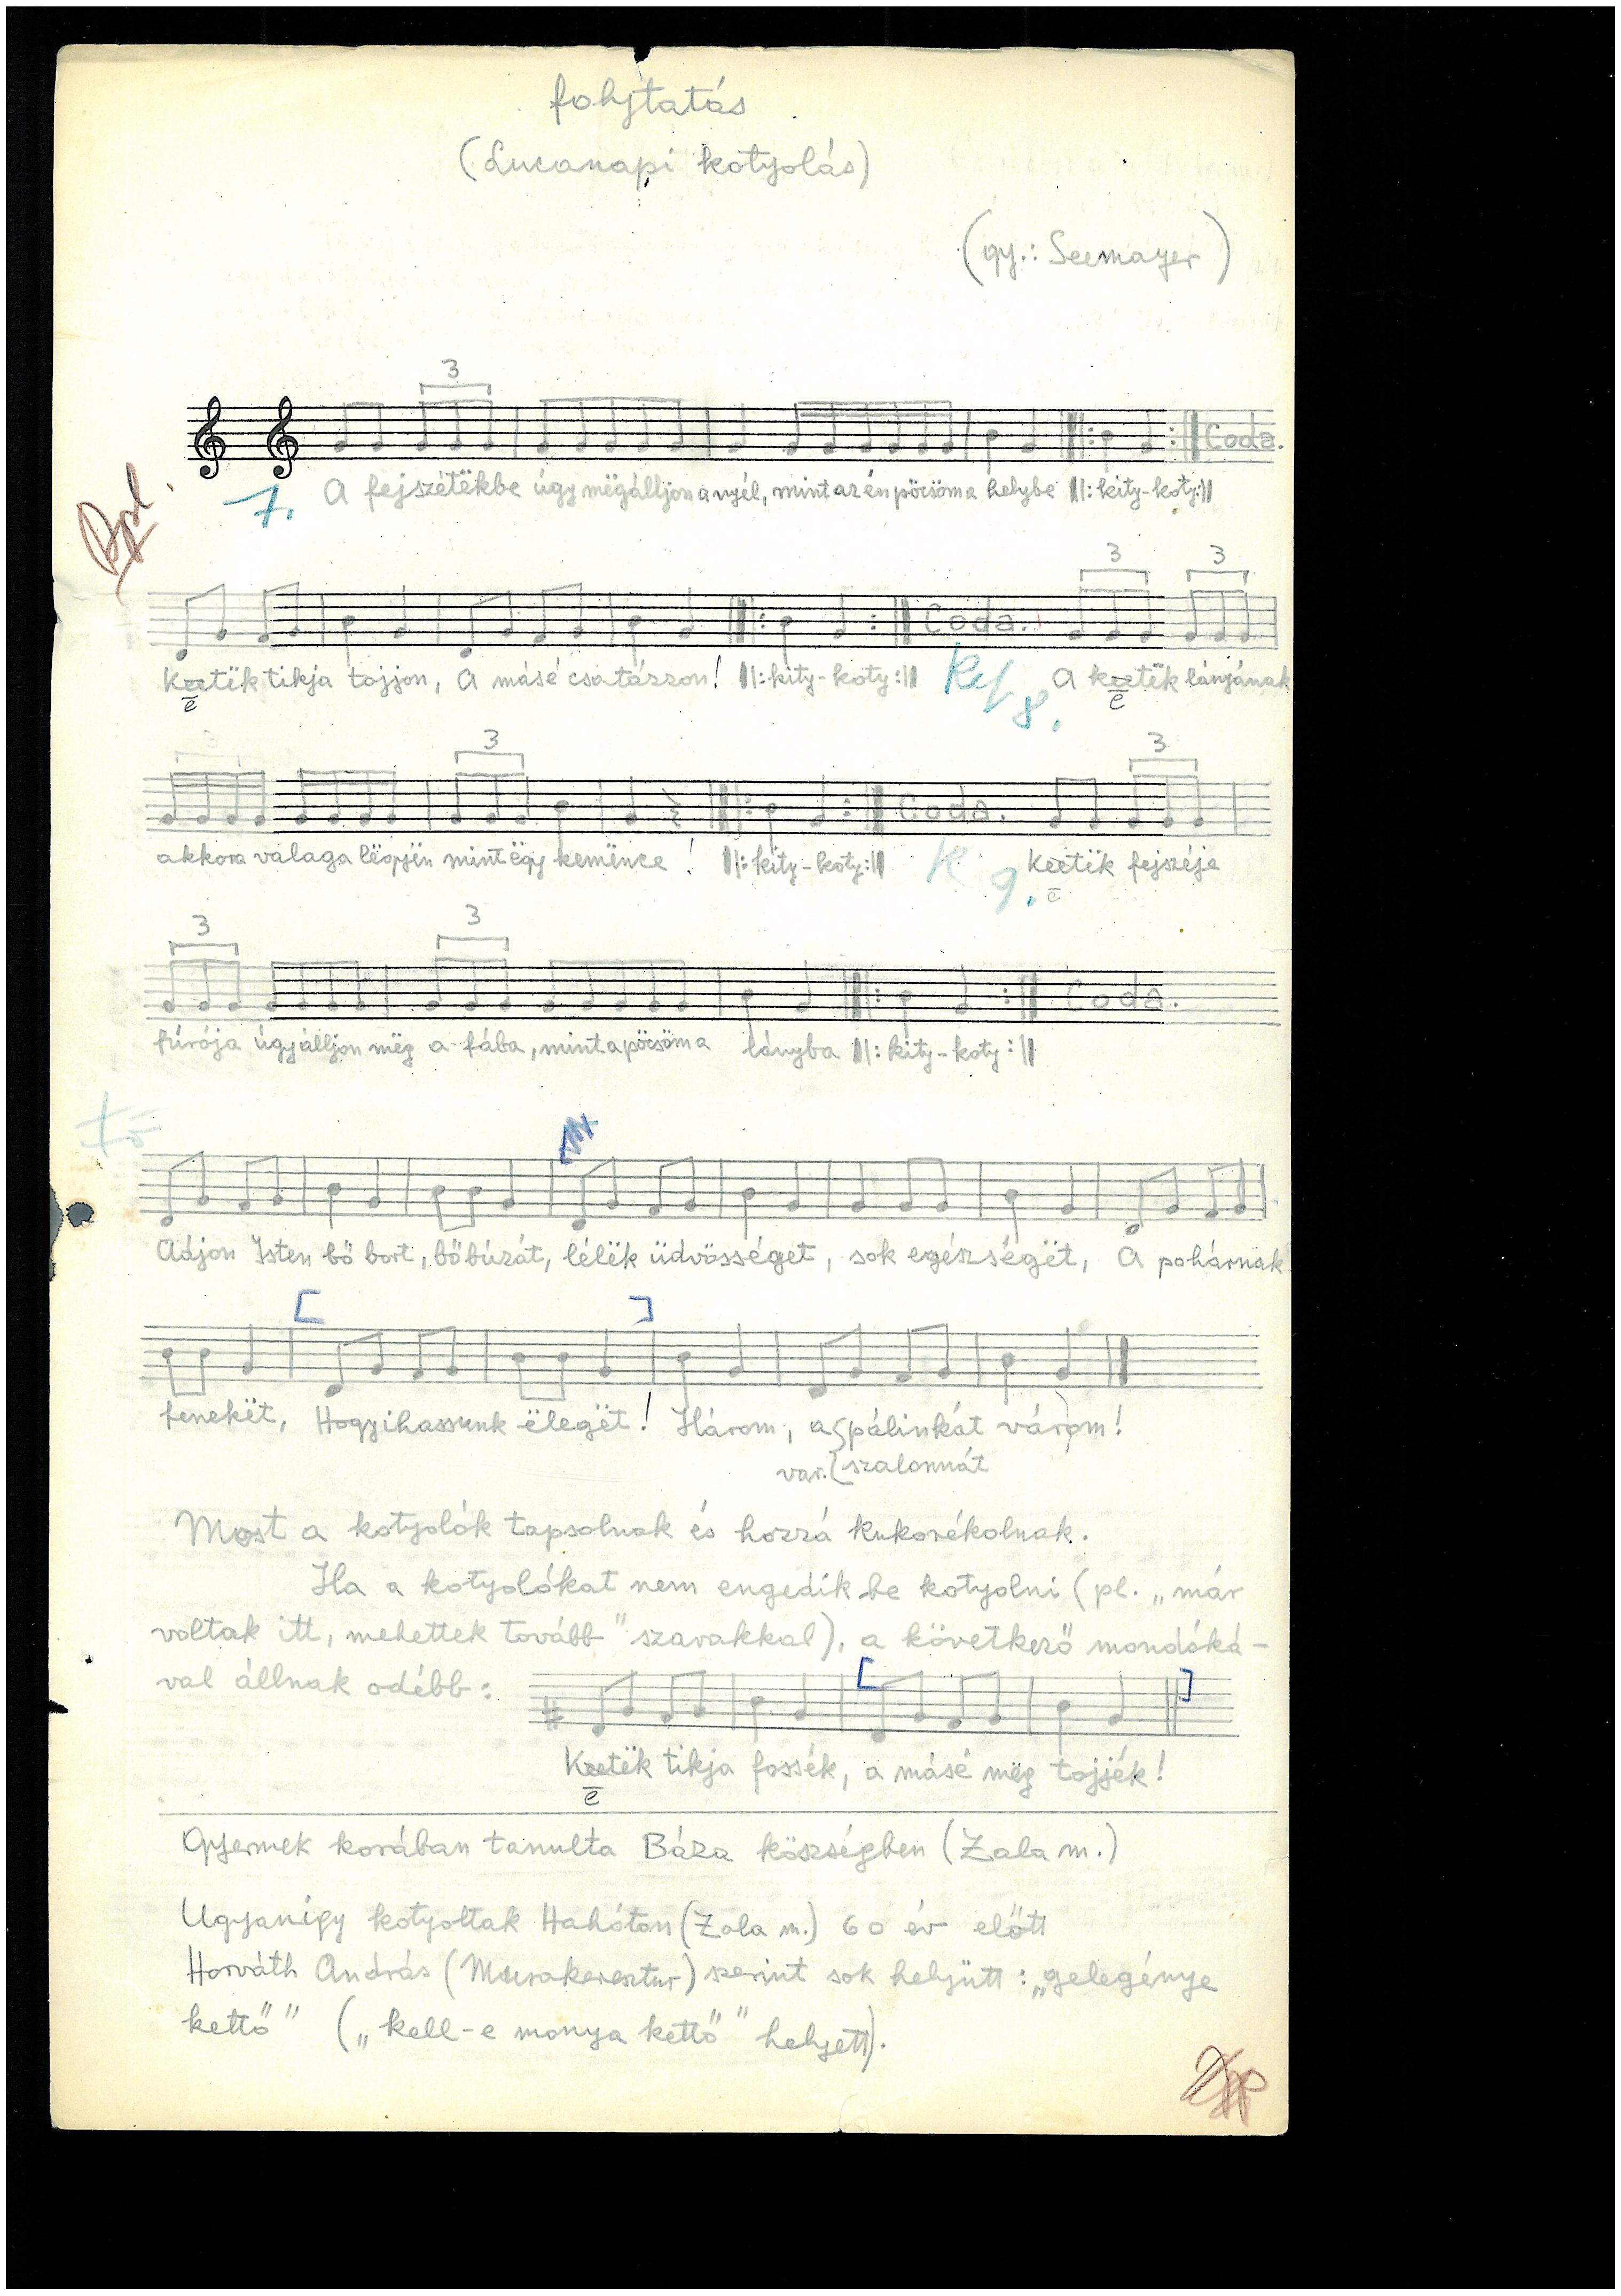 folytatás
(Lucanapi kotyolás)
(gy.: Seemayer)
3
Coda.
7. A fejszétëkbe úgy mëgálljon a nyél, mint az én pöcsöm a helybe ||: kity-koty :||
3 3
Coda.
Keetëk tikja tojjon, A másé csatázzon! ||: kity-koty :|| Ref 8. A keetëk lányának
ē ē
3 3 3
Coda.
akkora valaga lëgyën mint ëgy kemënce! ||: kity-koty :|| R 9. Keetëk fejszéje
ē
3 3
Coda.
fúrója úgy álljon mëg a fába, mint a pöcsöm a lányba ||: kity-koty :||
Adjon Isten bő bort, bő búzát, lélëk üdvösséget, sok egészségët, A pohárnak
[ ]
fenekët, Hogy ihassunk ëlegët! Három, a { pálinkát várom!
var. { szalonnát
Most a kotyolók tapsolnak és hozzá kukorékolnak.
Ha a kotyolókat nem engedik be kotyolni (pl. „már
voltak itt, mehettek tovább" szavakkal), a következő mondóká-
val állnak odébb: [ ]
Keetëk tikja fossék, a másé mëg tojjék!
ē
Gyermek korában tanulta Báza községben (Zala m.)
Ugyanígy kotyoltak Hahóton (Zala m.) 60 év előtt
Horváth András (Murakeresztur) szerint sok helyütt: „gelegénye
kettő" („kell-e monya kettő" helyett).